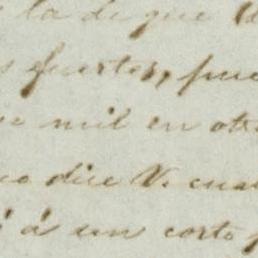 la de que
fuertes, pue
mil en otr
dice V. cua
á un corto